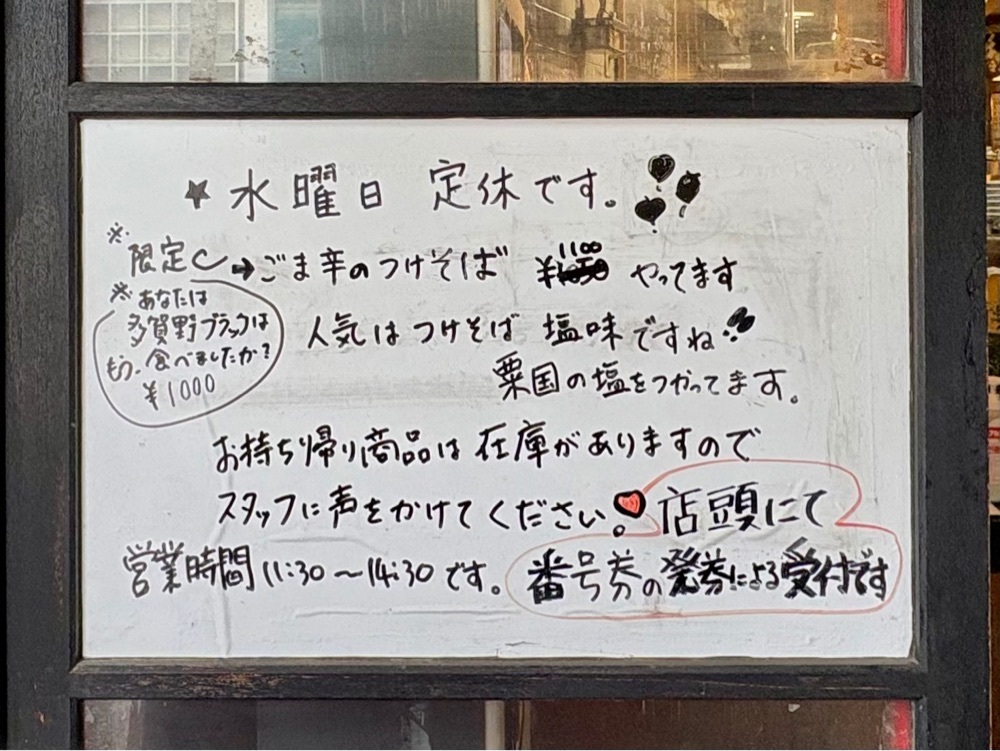 ★水曜日 定休です。
※限定 → ごま辛のつけそば ¥1100 やってます
※あなたは
多賀野ブラックは
もう、食べましたか?
¥1000
人気はつけそば 塩味ですね!
粟国の塩をつかってます。
お持ち帰り商品は在庫がありますので
スタッフに声をかけてください。
店頭にて
営業時間 11:30～14:30です。
番号券の発券による受付です